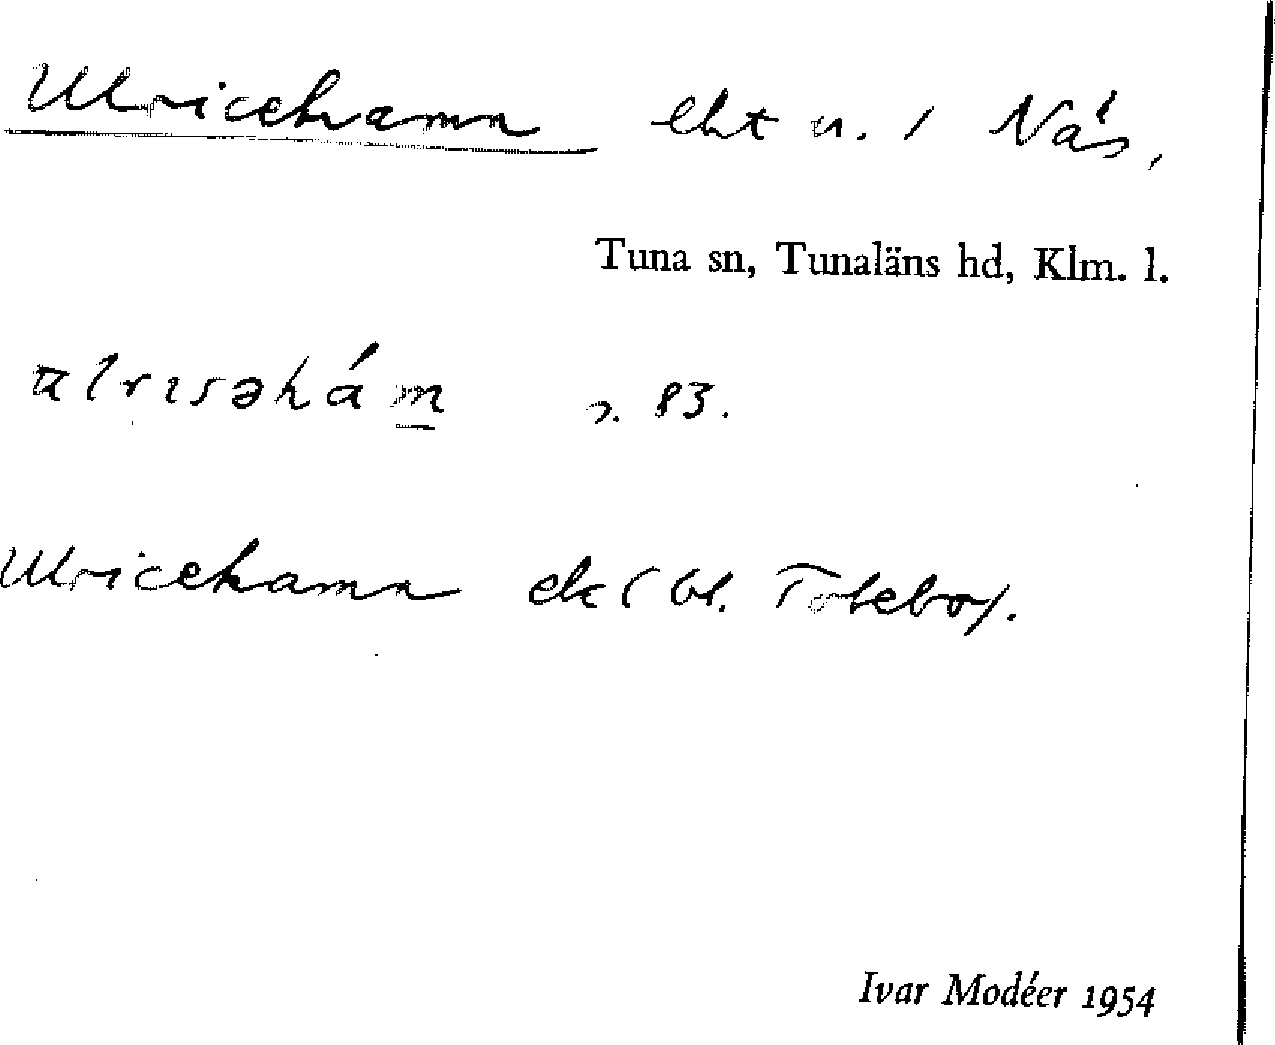 Ulricehamn lht u. / Näs,
Tuna sn, Tunaläns hd, Klm. l.
ulrisəhám s. 83.
Ulricehamn ek (bl. Totebo).
Ivar Modéer 1954